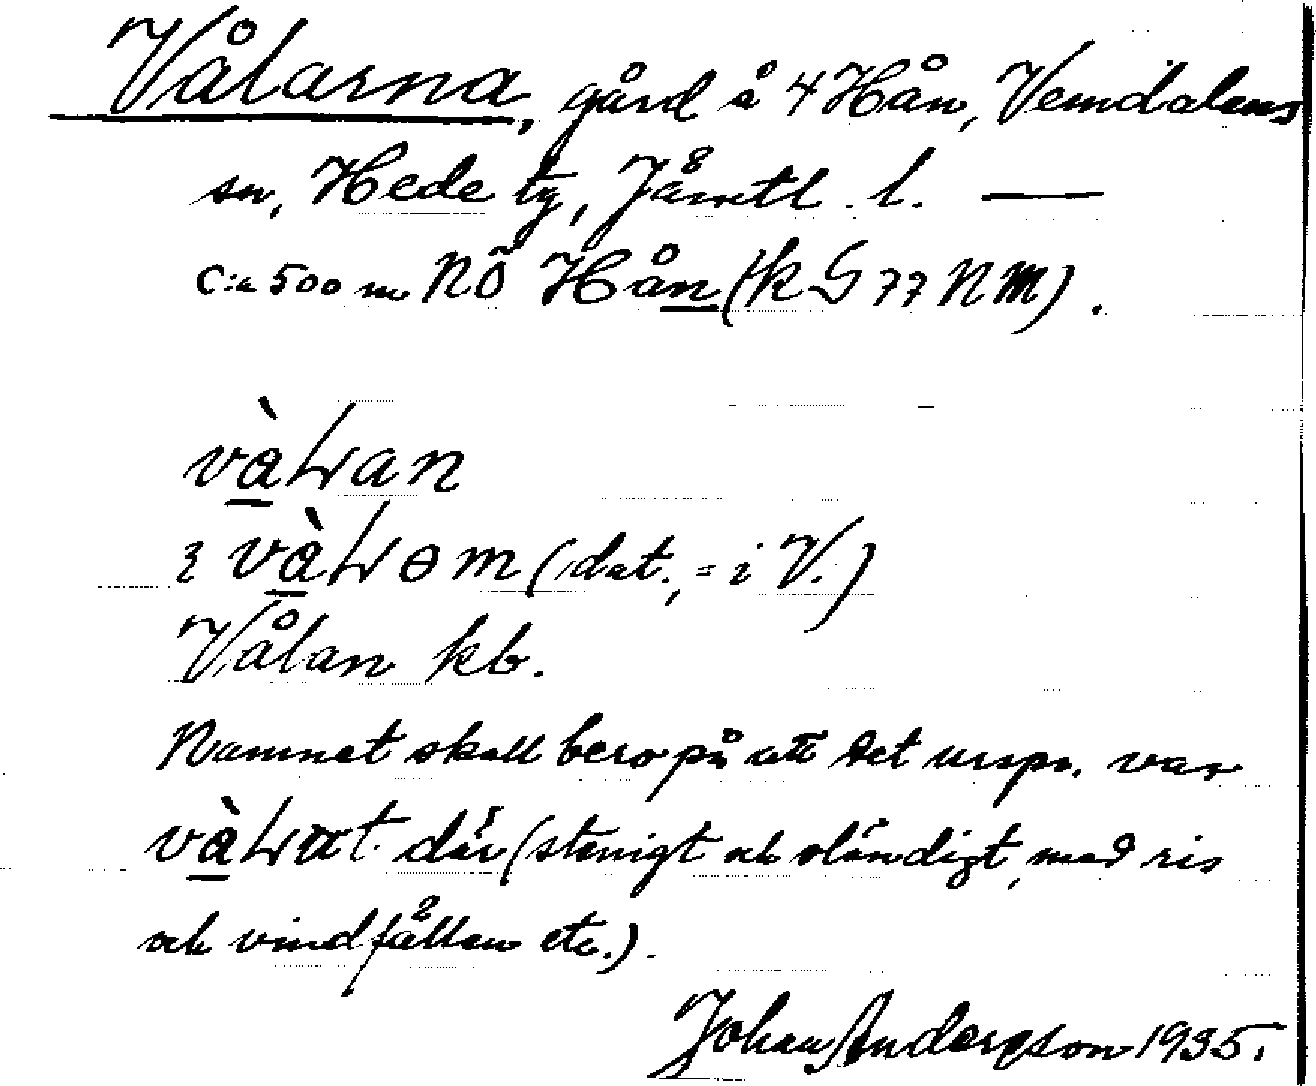 Vålarna, gård å 4 Hån, Vemdalens
sn, Hede tg, Jämtl. l. —
c:a 500 m NÖ Hån (tk S 77 NM).
vàɫɩan
ɩ vàɫɩɵm (dat., = i V.)
Vålan kb.
Namnet skall bero på att det urspr. var
vàɫɩut där (stenigt och oländigt, med ris
och vindfällen etc.).
Johan Anderson 1935.